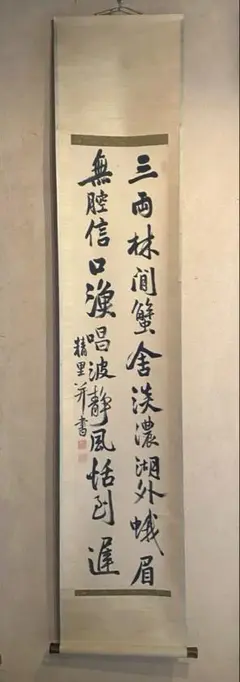 三兩林間蟹舍淡濃湖外蛾眉
無腔信口漁唱波靜風恬到遲
精里并書